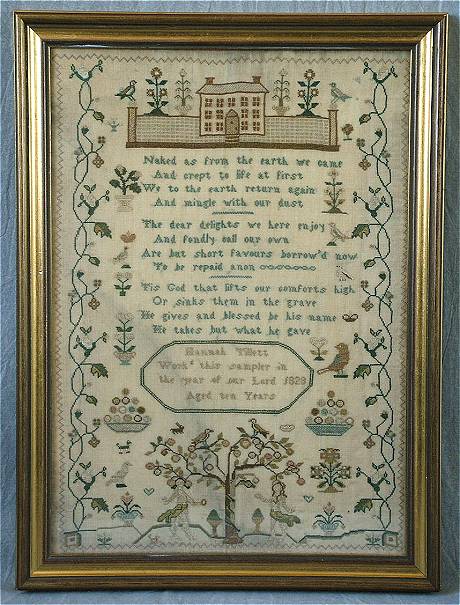 Naked as from the earth we came
And crept to life at first
We to the earth return again
And mingle with our dust
The dear delights we here enjoy
And fondly call our own
Are but short favours borrow'd now
To be repaid anon
'Tis God that lifts our comforts high
Or sinks them in the grave
He gives and blessed be his name
He takes but what he gave
Hannah Tillett
Work'd this sampler in
the year of our Lord 1828
Aged ten Years